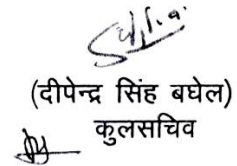 (दीपेन्द्र सिंह बघेल)
कुलसचिव